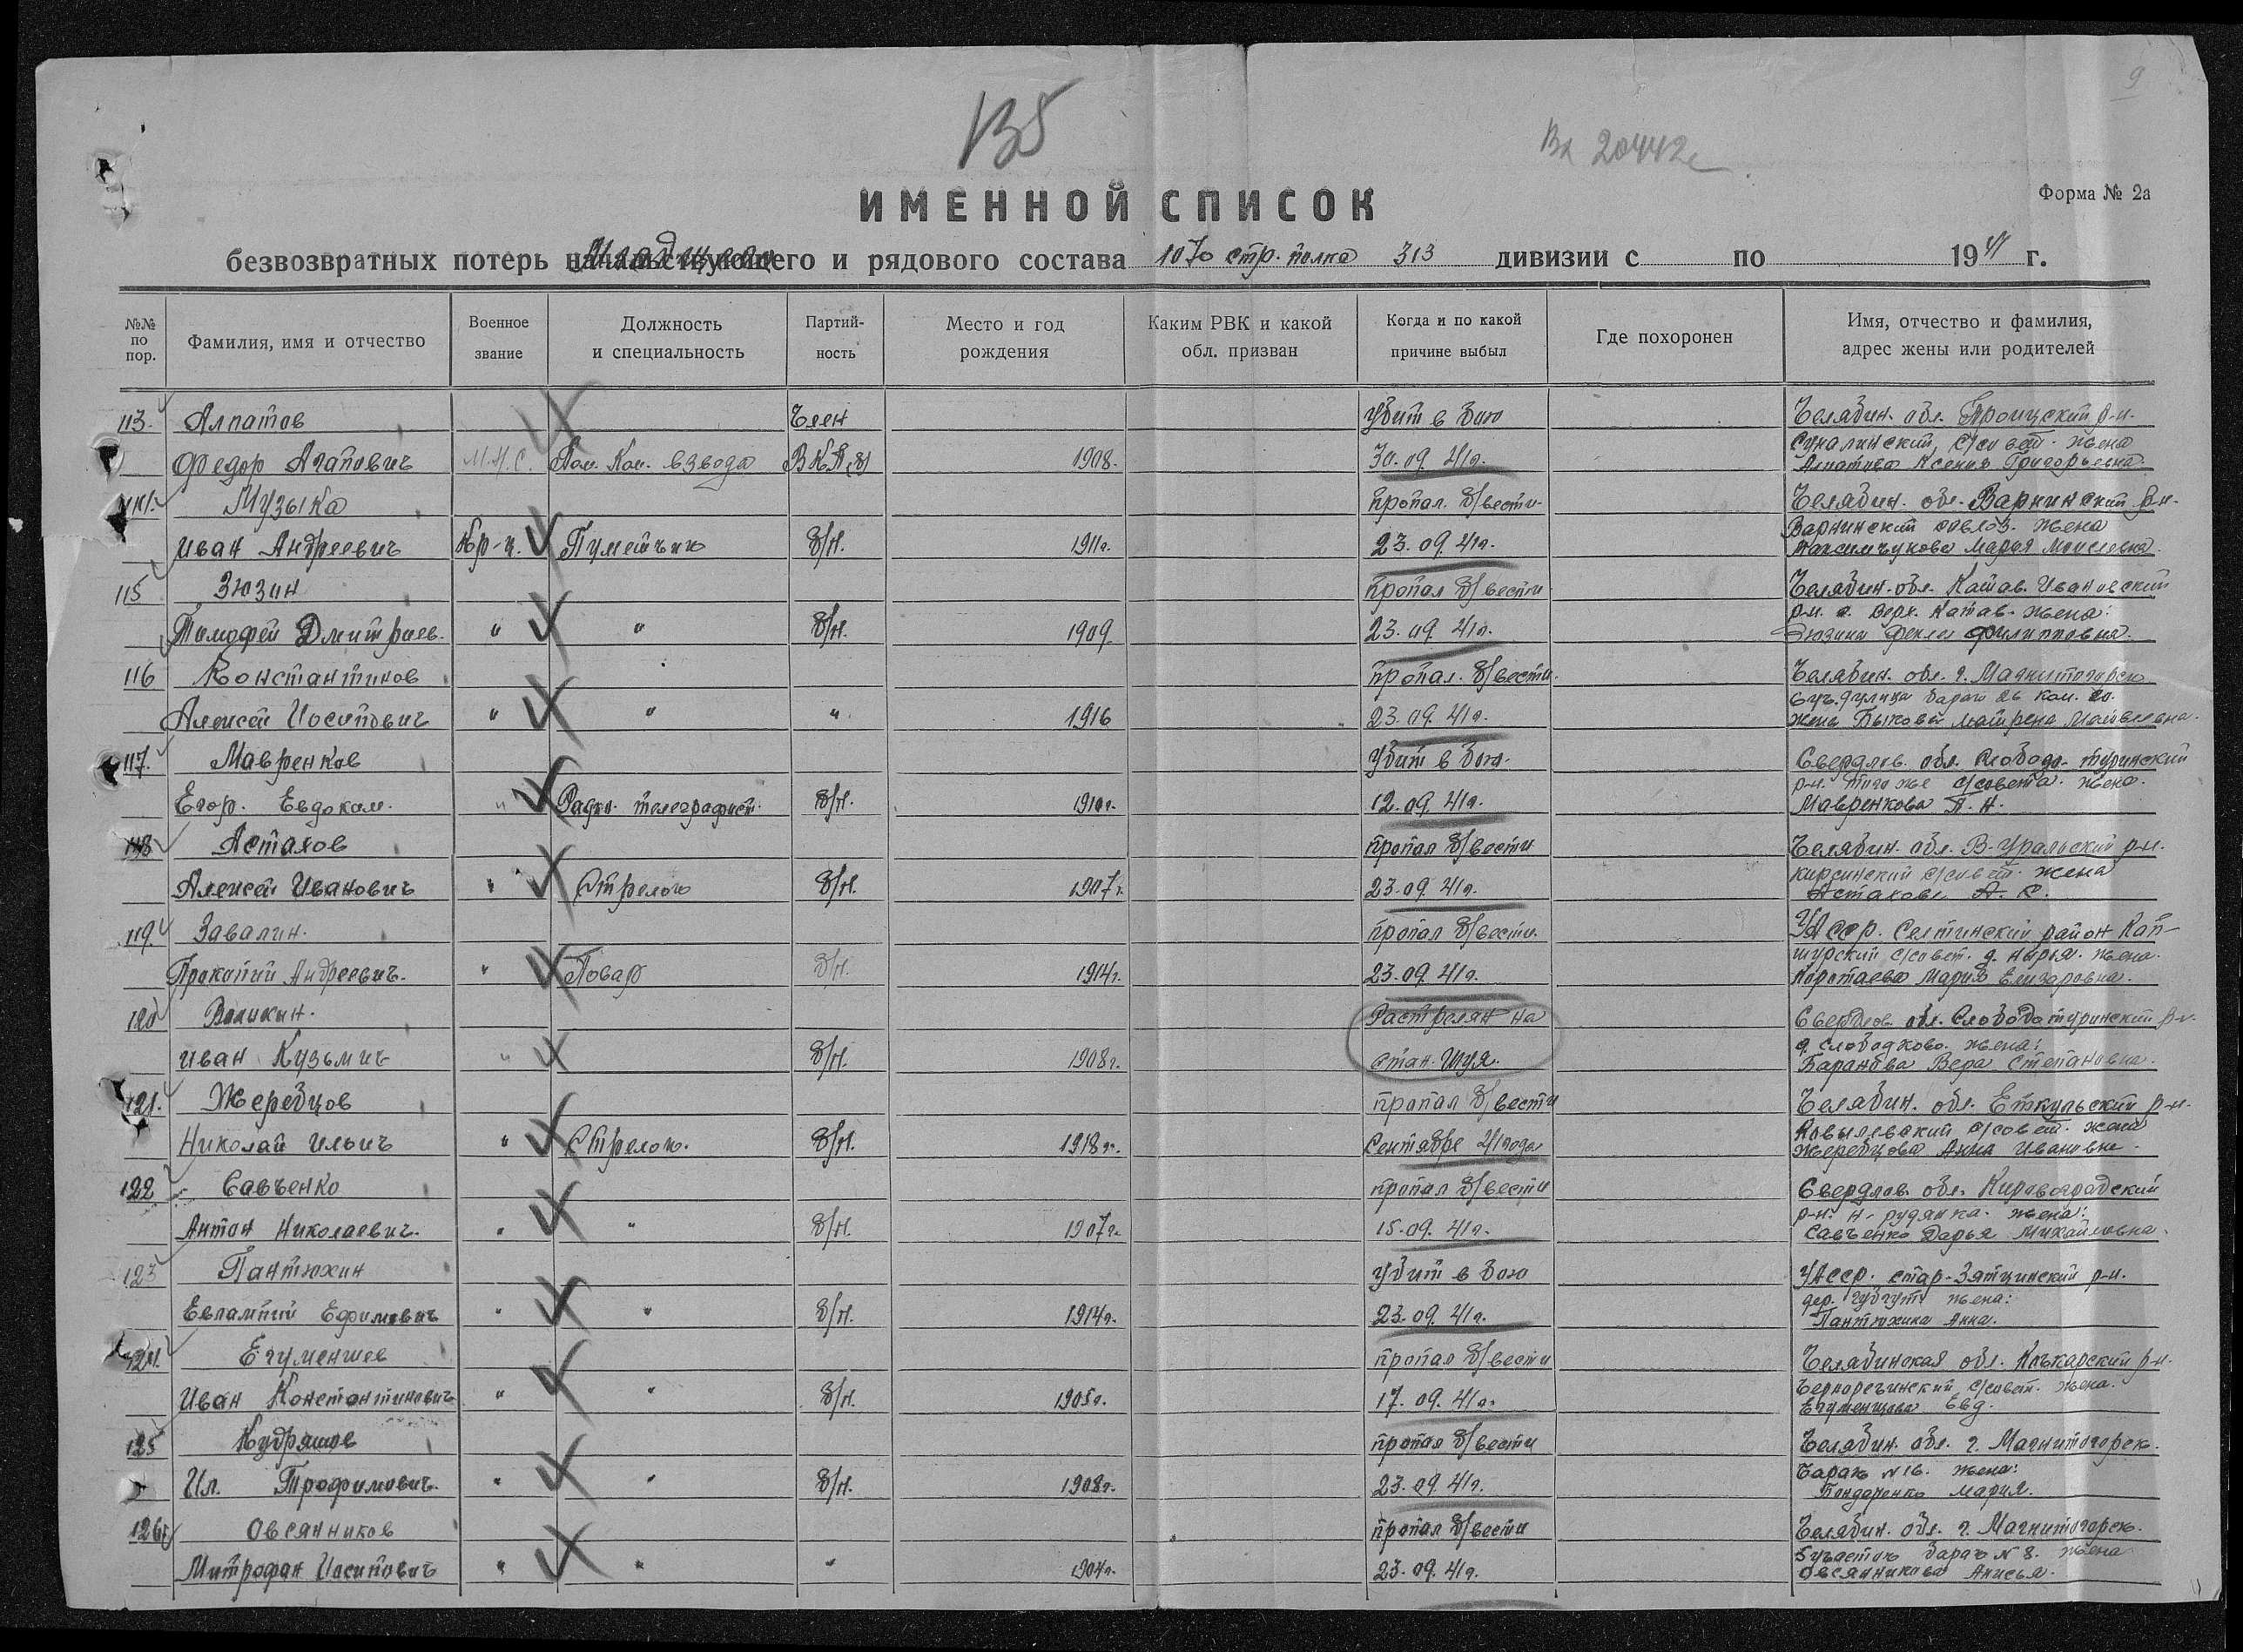 9
135
Вх 20442с
ИМЕННОЙ СПИСОК
Форма № 2а
безвозвратных потерь начальствующего и рядового состава 1070 стр. полка 313 дивизии с по 1941 г.
№№ по пор.
Фамилия, имя и отчество
Военное звание
Должность и специальность
Партий-ность
Место и год рождения
Каким РВК и какой обл. призван
Когда и по какой причине выбыл
Где похоронен
Имя, отчество и фамилия, адрес жены или родителей
113. Алпатов Член Убит в бою Челябин. обл. Троицский р-н.
Суналинский с/совет. жена
Федор Агапович М.Н.С. Пом. Ком. взвода ВКП(б) 1908. 30.09.41г. Алпатова Ксения Григорьевна.
114. Музыка пропал. б/вести Челябин. обл. Варнинский р-н.
Варнинский совхоз. жена
Иван Андреевич Кр-ц. Пулемётчик б/п. 1911г. 23.09.41г. Максимчукова Мария Моисеевна.
115 Зюзин пропал б/вести Челябин. обл. Катав. Ивановский
р-н. с. Верх. Катав. жена:
Тимофей Дмитриев. " " б/п. 1909 23.09.41г. Зюзина Фекла Филипповна.
116 Константинов пропал. б/вести. Челябин. обл. г. Магнитогорск
барак 26 ком. 20.
Алексей Иосипович " " " 1916 23.09.41г. жена Быкова Матрена Матвеевна.
117. Мавренков Убит в бою. Свердлов. обл. Слободо-туринский
р-н. с/совета. жена.
Егор. Евдоким. " Радио. телеграфист. б/п. 1910г. 12.09.41г. Мавренкова П. Н.
118 Астахов пропал б/вести Челябин. обл. В-Уральский р-н.
Кирсинский с/совет. жена
Алексей Иванович " Стрелок б/п. 1907г. 23.09.41г. Астахова А. С.
119. Завалин. пропал б/вести. УАССР. Селтинский район Кап-
шурский с/совет. д. Нырья. жена.
Прокопий Андреевич. " Повар б/п. 1914г. 23.09.41г. Коротаева Мария Елизаровна.
120 Валикин. Растрелян на Свердлов. обл. Слободотуринский р-н.
д. Слободково. жена:
Иван Кузьмич " б/п. 1908г. стан. Шуя. Баранова Вера Степановна.
121. Жеребцов пропал б/вести Челябин. обл. Еткульский р-н.
с/совет. жена
Николай Ильич " Стрелок. б/п. 1918г. Сентябре 41года Жеребцова Анна Ивановна.
122 Савченко пропал б/вести Свердлов. обл. Кировоградский
р-н. Н-рудянка. жена:
Антон Николаевич. " " б/п. 1907г. 15.09.41г. Савченко Дарья Михайловна.
123 Пантюхин Убит в бою УАССР. стар-Зятцинский р-н.
дер. жена:
Евлампий Ефимович " " б/п. 1914г. 23.09.41г. Пантюхина Анна.
124. Егуменшев пропал б/вести Челябинская обл. р-н.
Чернореченский с/совет. жена.
Иван Константинович " " б/п. 1905г. 17.09.41г. Егуменшева Евд.
125 Кудряшов пропал б/вести Челябин. обл. г. Магнитогорск.
барак №16. жена:
Ил. Трофимович. " " б/п. 1908г. 23.09.41г. Бондаренко Мария.
126 Овсянников пропал б/вести Челябин. обл. г. Магнитогорск.
5 участок барак №8. жена
Митрофан Иосипович " " " 1904г. 23.09.41г. Овсянникова Анисья.